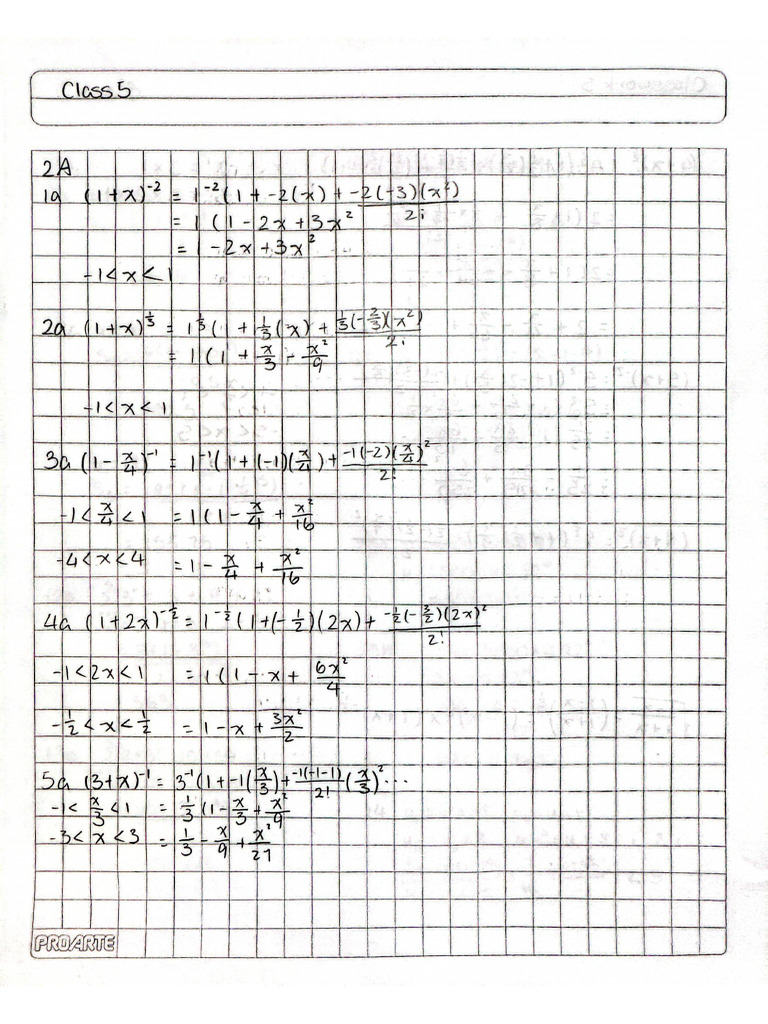 Class 5
2A
1a (1+x)⁻² = 1⁻²(1 + -2(x) + -2(-3)(x²)/2!
= 1(1 - 2x + 3x²
= 1 - 2x + 3x²
-1 < x < 1
2a (1+x)^(1/3) = 1^(1/3)(1 + 1/3(x) + 1/3(-2/3)(x²)/2!
= 1(1 + x/3 - x²/9
-1 < x < 1
3a (1 - x/4)⁻¹ = 1⁻¹(1 + (-1)(x/4) + -1(-2)(x/4)²/2!
-1 < x/4 < 1 = 1(1 - x/4 + x²/16
-4 < x < 4 = 1 - x/4 + x²/16
4a (1+2x)^(-1/2) = 1^(-1/2)(1 + (-1/2)(2x) + -1/2(-3/2)(2x)²/2!
-1 < 2x < 1 = 1(1 - x + 6x²/4
-1/2 < x < 1/2 = 1 - x + 3x²/2
5a (3+x)⁻¹ = 3⁻¹(1 + -1(x/3) + -1(-1-1)/2! (x/3)² ...
-1 < x/3 < 1 = 1/3(1 - x/3 + x²/9
-3 < x < 3 = 1/3 - x/9 + x²/27
PROARTE